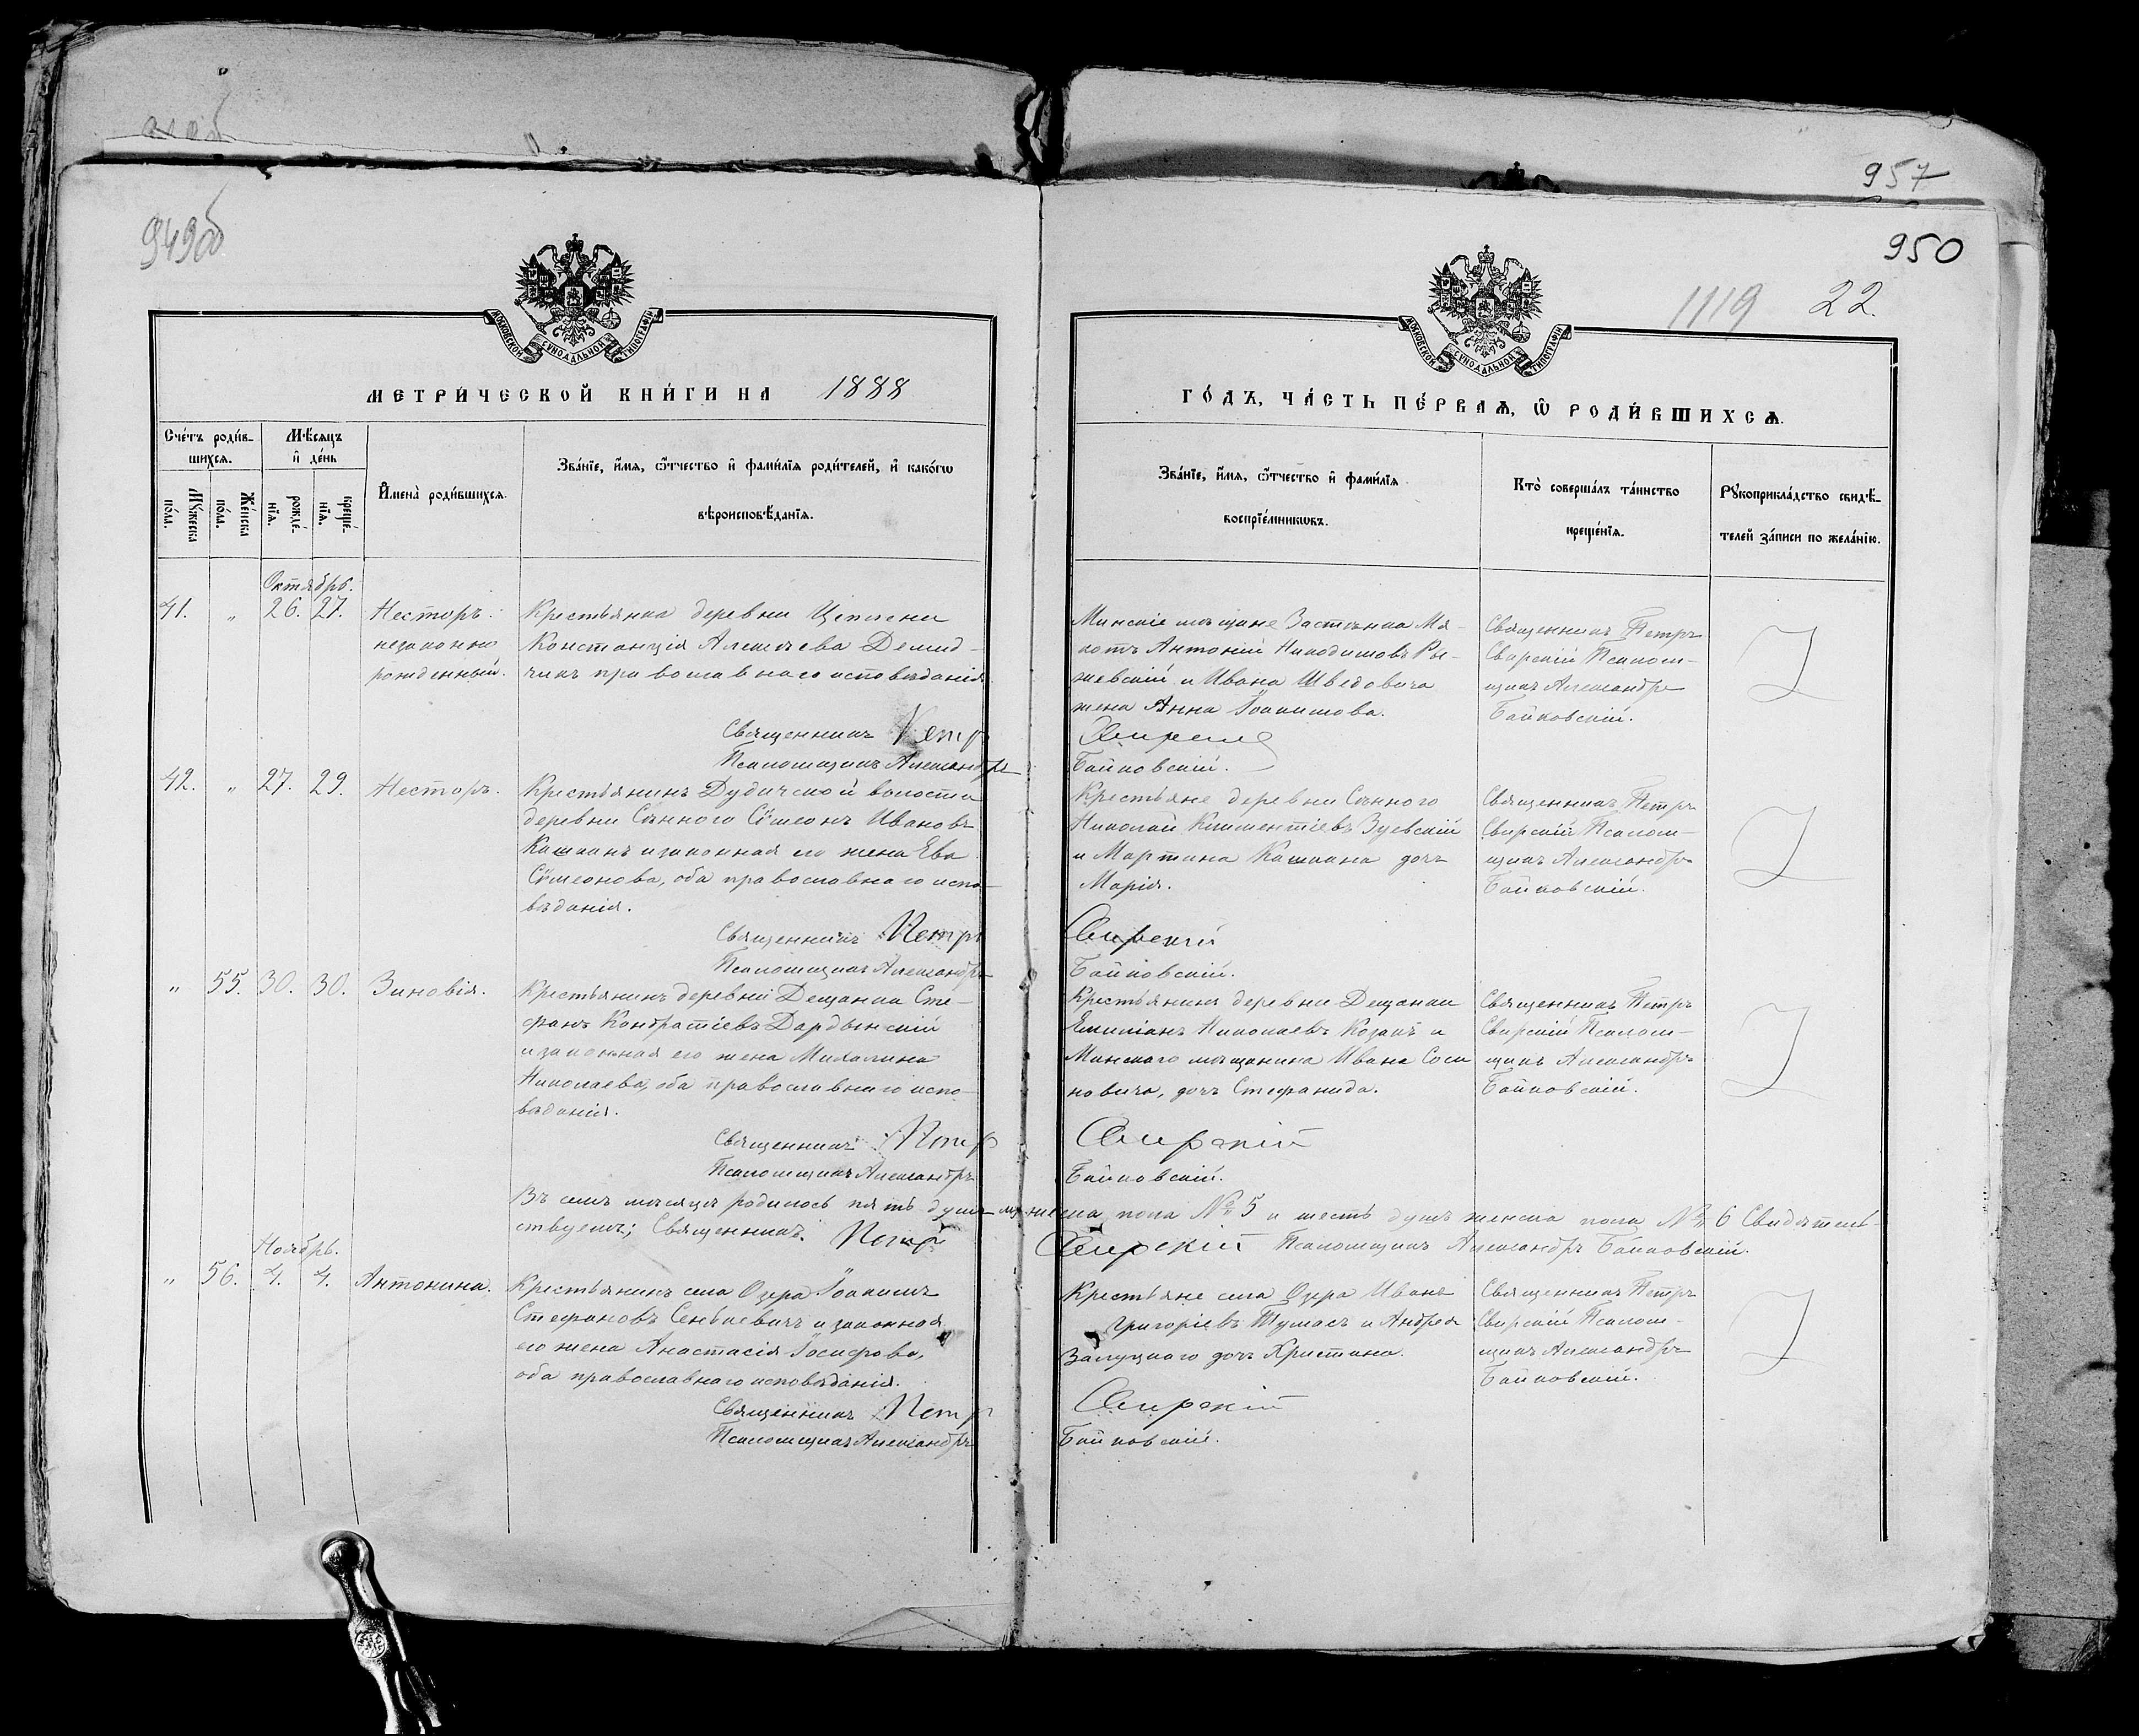 957
949об
950
1119 22.
МОСКОВСКОЙ СѴНОДАЛЬНОЙ ТИПОГРАФІИ
МОСКОВСКОЙ СѴНОДАЛЬНОЙ ТИПОГРАФІИ
МЕТРИ́ЧЕСКОЙ КНИ́ГИ НА 1888
ГО́ДЪ, ЧА́СТЬ ПЕ́РВАѦ, Ѽ РОДИ́ВШИХСѦ.
Сче́тъ роди́в-
шихсѧ.
Мѣ́сѧцъ
и҆ де́нь
Мꙋжеска
по́ла.
Же́нска
по́ла.
рожде́-
нїѧ.
креще́-
нїѧ.
И҆мена̀ роди́вшихсѧ.
Зва́нїе, и҆́мѧ, ѻ҆́тчество и҆ фами́лїѧ роди́телей, и҆ како́гѡ
вѣроисповѣ́данїѧ.
Зва́нїе, и҆́мѧ, ѻ҆́тчество и҆ фами́лїѧ
воспрїе́мникѡвъ.
Кто̀ соверша́лъ та́инство
креще́нїѧ.
Рꙋкоприкла́дство свидѣ́-
телей за́писи по жела́нїю.
Октябрь.
41. " 26. 27. Несторъ.
незаконно
рожденный.
Крестьянка деревни
Констанція Алексѣева Демид-
чикъ православнаго исповѣданія
Священникъ Петръ
Псаломщикъ Александръ
Минскіе мѣщане Застѣнка Ма-
котъ Антоній Никодимовъ Ры-
жевскій и Ивана Шведовича
жена Анна Іоакимова.
Свирскій
Байковскій.
Священникъ Петръ
Свирскій Псалом-
щикъ Александръ
Байковскій.
42. " 27. 29. Несторъ.
Крестьянинъ Дудичской волости
деревни Сѣнного Сѷмеонъ Ивановъ
Кашканъ и законная его жена Ева
Сѷмеонова, оба православнаго испо-
вѣданія.
Священникъ Петръ
Псаломщикъ Александръ
Крестьяне деревни Сѣнного
Николай Климентіевъ Зуевскій
и Мартина Кашкана дочь
Марія.
Свирскій
Байковскій.
Священникъ Петръ
Свирскій Псалом-
щикъ Александръ
Байковскій.
" 55. 30. 30. Зиновія.
Крестьянинъ деревни Дещанки Сте-
фанъ Кондратіевъ Дардынскій
и законная его жена Михалина
Николаева, оба православнаго испо-
вѣданія.
Священникъ Петръ
Псаломщикъ Александръ
Крестьянинъ деревни Дещанки
Емиліанъ Николаевъ Козакъ и
Минскаго мѣщанина Ивана Соси
новича, дочь Стефанида.
Свирскій
Байковскій.
Священникъ Петръ
Свирскій Псалом-
щикъ Александръ
Байковскій.
Въ семъ мѣсяцѣ родилось пять душъ мужеска пола № 5 и шесть душъ женска пола № 6 Свидѣтель-
ствуемъ; Священникъ Петръ Свирскій Псаломщикъ Александръ Байковскій.
Ноябрь.
" 56. 4. 4. Антонина.
Крестьянинъ села Озера Іоакимъ
Стефановъ Сенькевичъ и законная
его жена Анастасія Іосифова,
оба православнаго исповѣданія.
Священникъ Петръ
Псаломщикъ Александръ
Крестьяне села Озера Иванъ
Григоріевъ Тумасъ и Андрея
Залуцкаго дочь Христина.
Свирскій
Байковскій.
Священникъ Петръ
Свирскій Псалом-
щикъ Александръ
Байковскій.